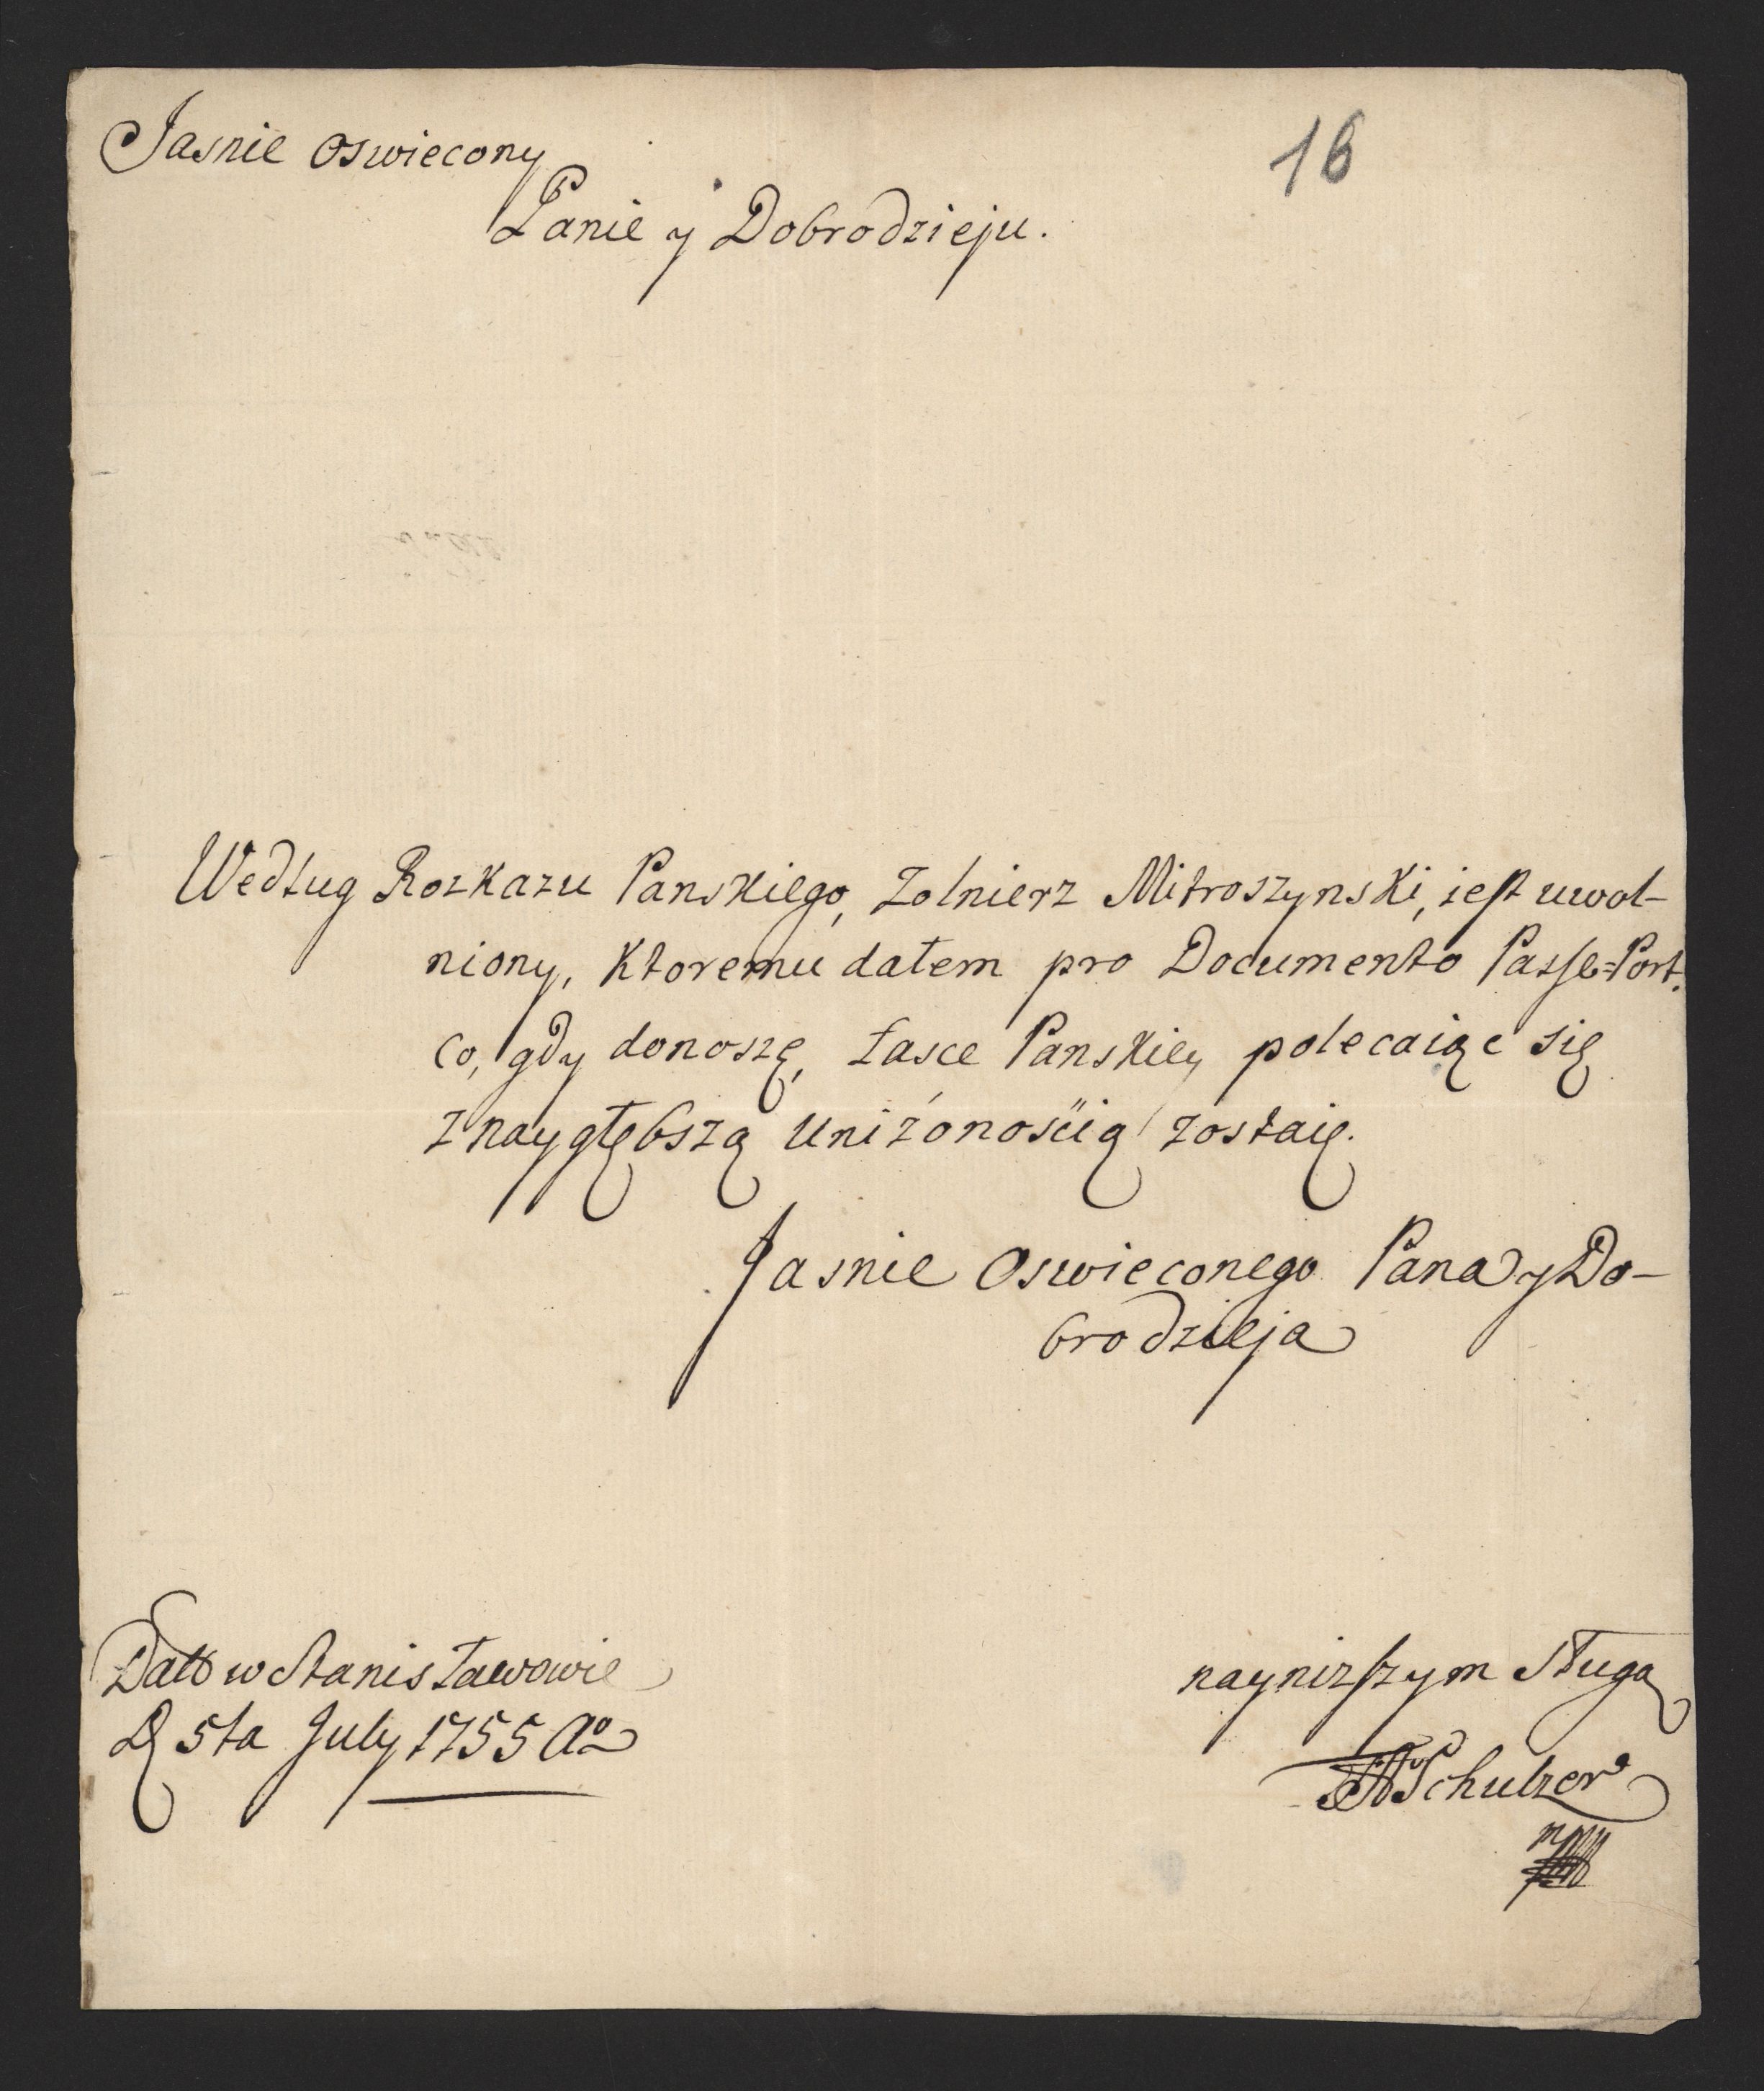 16
Jasnie Oswiecony
Panie y Dobrodzieju.
Według Rozkazu Panskiego, Zolnierz Mitroszynski, iest uwol-
niony, Ktoremu dałem pro Documento Passe=Port.
Co, gdy donoszę, Łasce Panskiey polecaiąc się
z naygłębszą Uniżonośćią zostaię.
Jasnie Oswieconego Pana y Do-
brodzieja
Datt w Stanisławowie
D 5ta July 1755 Ao
naynizszym Sługą
Schultzer